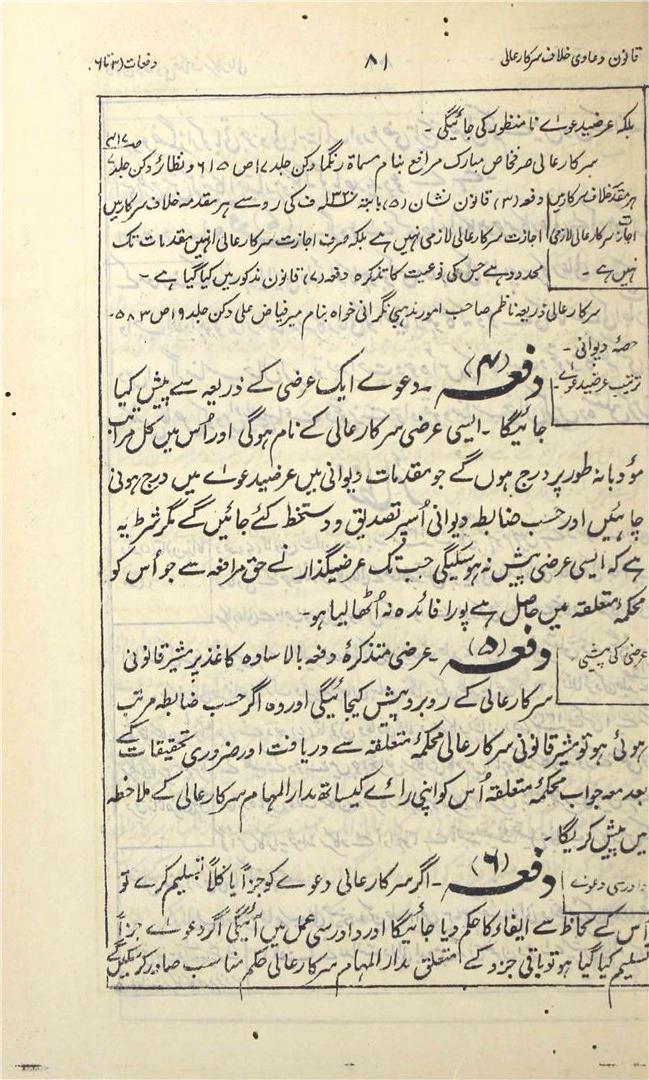 قانون دعاوی خلاف سرکار عالی ۸۱ دفعات (۳ تا ۶)
بلکہ عرضیدعوے نامنظور کی جائیگی ۔
سرکار عالی صرفخاص مبارک مرافع بنام مسماۃ رنگما دکن جلد ۱۷ ص ۶۱۵ و نظائر دکن جلد ۷ ص ۴۱۷
ہر مقدمہ خلاف سرکار میں اجازت سرکار عالی لازمی نہیں ہے ۔
دفعہ (۳) قانون نشان (۵) بابتہ ۱۳۲۰ ف کی رو سے ہر مقدمہ خلاف سرکار میں
اجازت سرکار عالی لازمی نہیں ہے بلکہ صرف اجازت سرکار عالی انہیں مقدمات تک
محدود ہے جس کی نوعیت کا تذکرہ دفعہ (۷) قانون مذکور میں کیا گیا ہے ۔
سرکار عالی ذریعہ ناظم صاحب امور مذہبی نگرانی خواہ بنام میر فیاض علی دکن جلد ۱۹ ص ۵۸۳ ۔
حصۂ دیوانی ۔
ترتیب عرضیدعوے ۔
دفعہ (۴) ۔ دعوے ایک عرضی کے ذریعہ سے پیش کیا
جائیگا ۔ ایسی عرضی سرکار عالی کے نام ہوگی اور اُس میں کل مراتب
مؤدبانہ طور پر درج ہوں گے جو مقدمات دیوانی میں عرضیدعوے میں درج ہونی
چاہئیں اور حسب ضابطہ دیوانی اُسپر تصدیق و دستخط کئے جائیں گے مگر شرط یہ
ہے کہ ایسی عرضی پیش نہ ہوسکیگی جب تک عرضیگذار نے حق مرافعہ سے جو اُس کو
محکمۂ متعلقہ میں حاصل ہے پورا فائدہ نہ اُٹھا لیا ہو ۔
عرضی کی پیشی ۔
دفعہ (۵) ۔ عرضی متذکرۂ دفعہ بالا سادہ کاغذ پر مشیر قانونی
سرکار عالی کے روبرو پیش کیجائیگی اور وہ اگر حسب ضابطہ مرتب
ہوئی ہو تو مشیر قانونی سرکار عالی محکمۂ متعلقہ سے دریافت اور ضروری تحقیقات کے
بعد معہ جواب محکمۂ متعلقہ اُس کو اپنی رائے کیساتھ مدارالمہام سرکار عالی کے ملاحظہ
میں پیش کریگا ۔
دادرسی دعوے
دفعہ (۶) ۔ اگر سرکار عالی دعوے کو جزاً یا کلاً تسلیم کرے تو
اُس کے لحاظ سے ایفاء کا حکم دیا جائیگا اور دادرسی عمل میں آئیگی اگر دعوے جزاً
تسلیم کیا گیا ہو تو باقی جزو کے متعلق مدارالمہام سرکار عالی حکم مناسب صادر کرسکیں گے